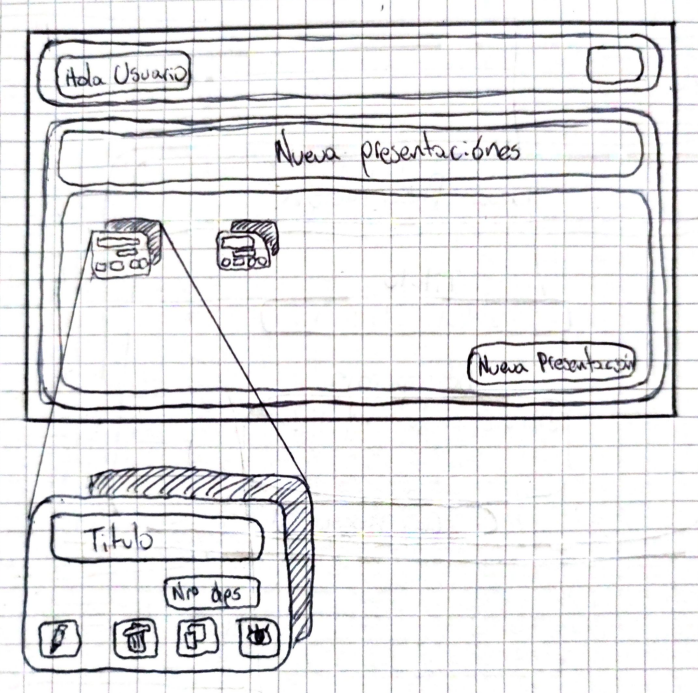 Hola Usuario
Nueva presentaciónes
Nueva Presentación
Titulo
Nro